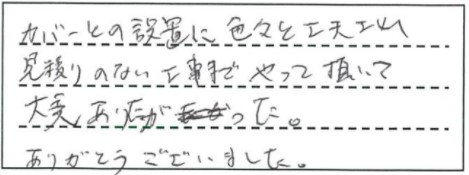 カバーとの設置に色々と工夫され
見積りのない工事までやって頂いて
大変ありがたかった。
ありがとうございました。